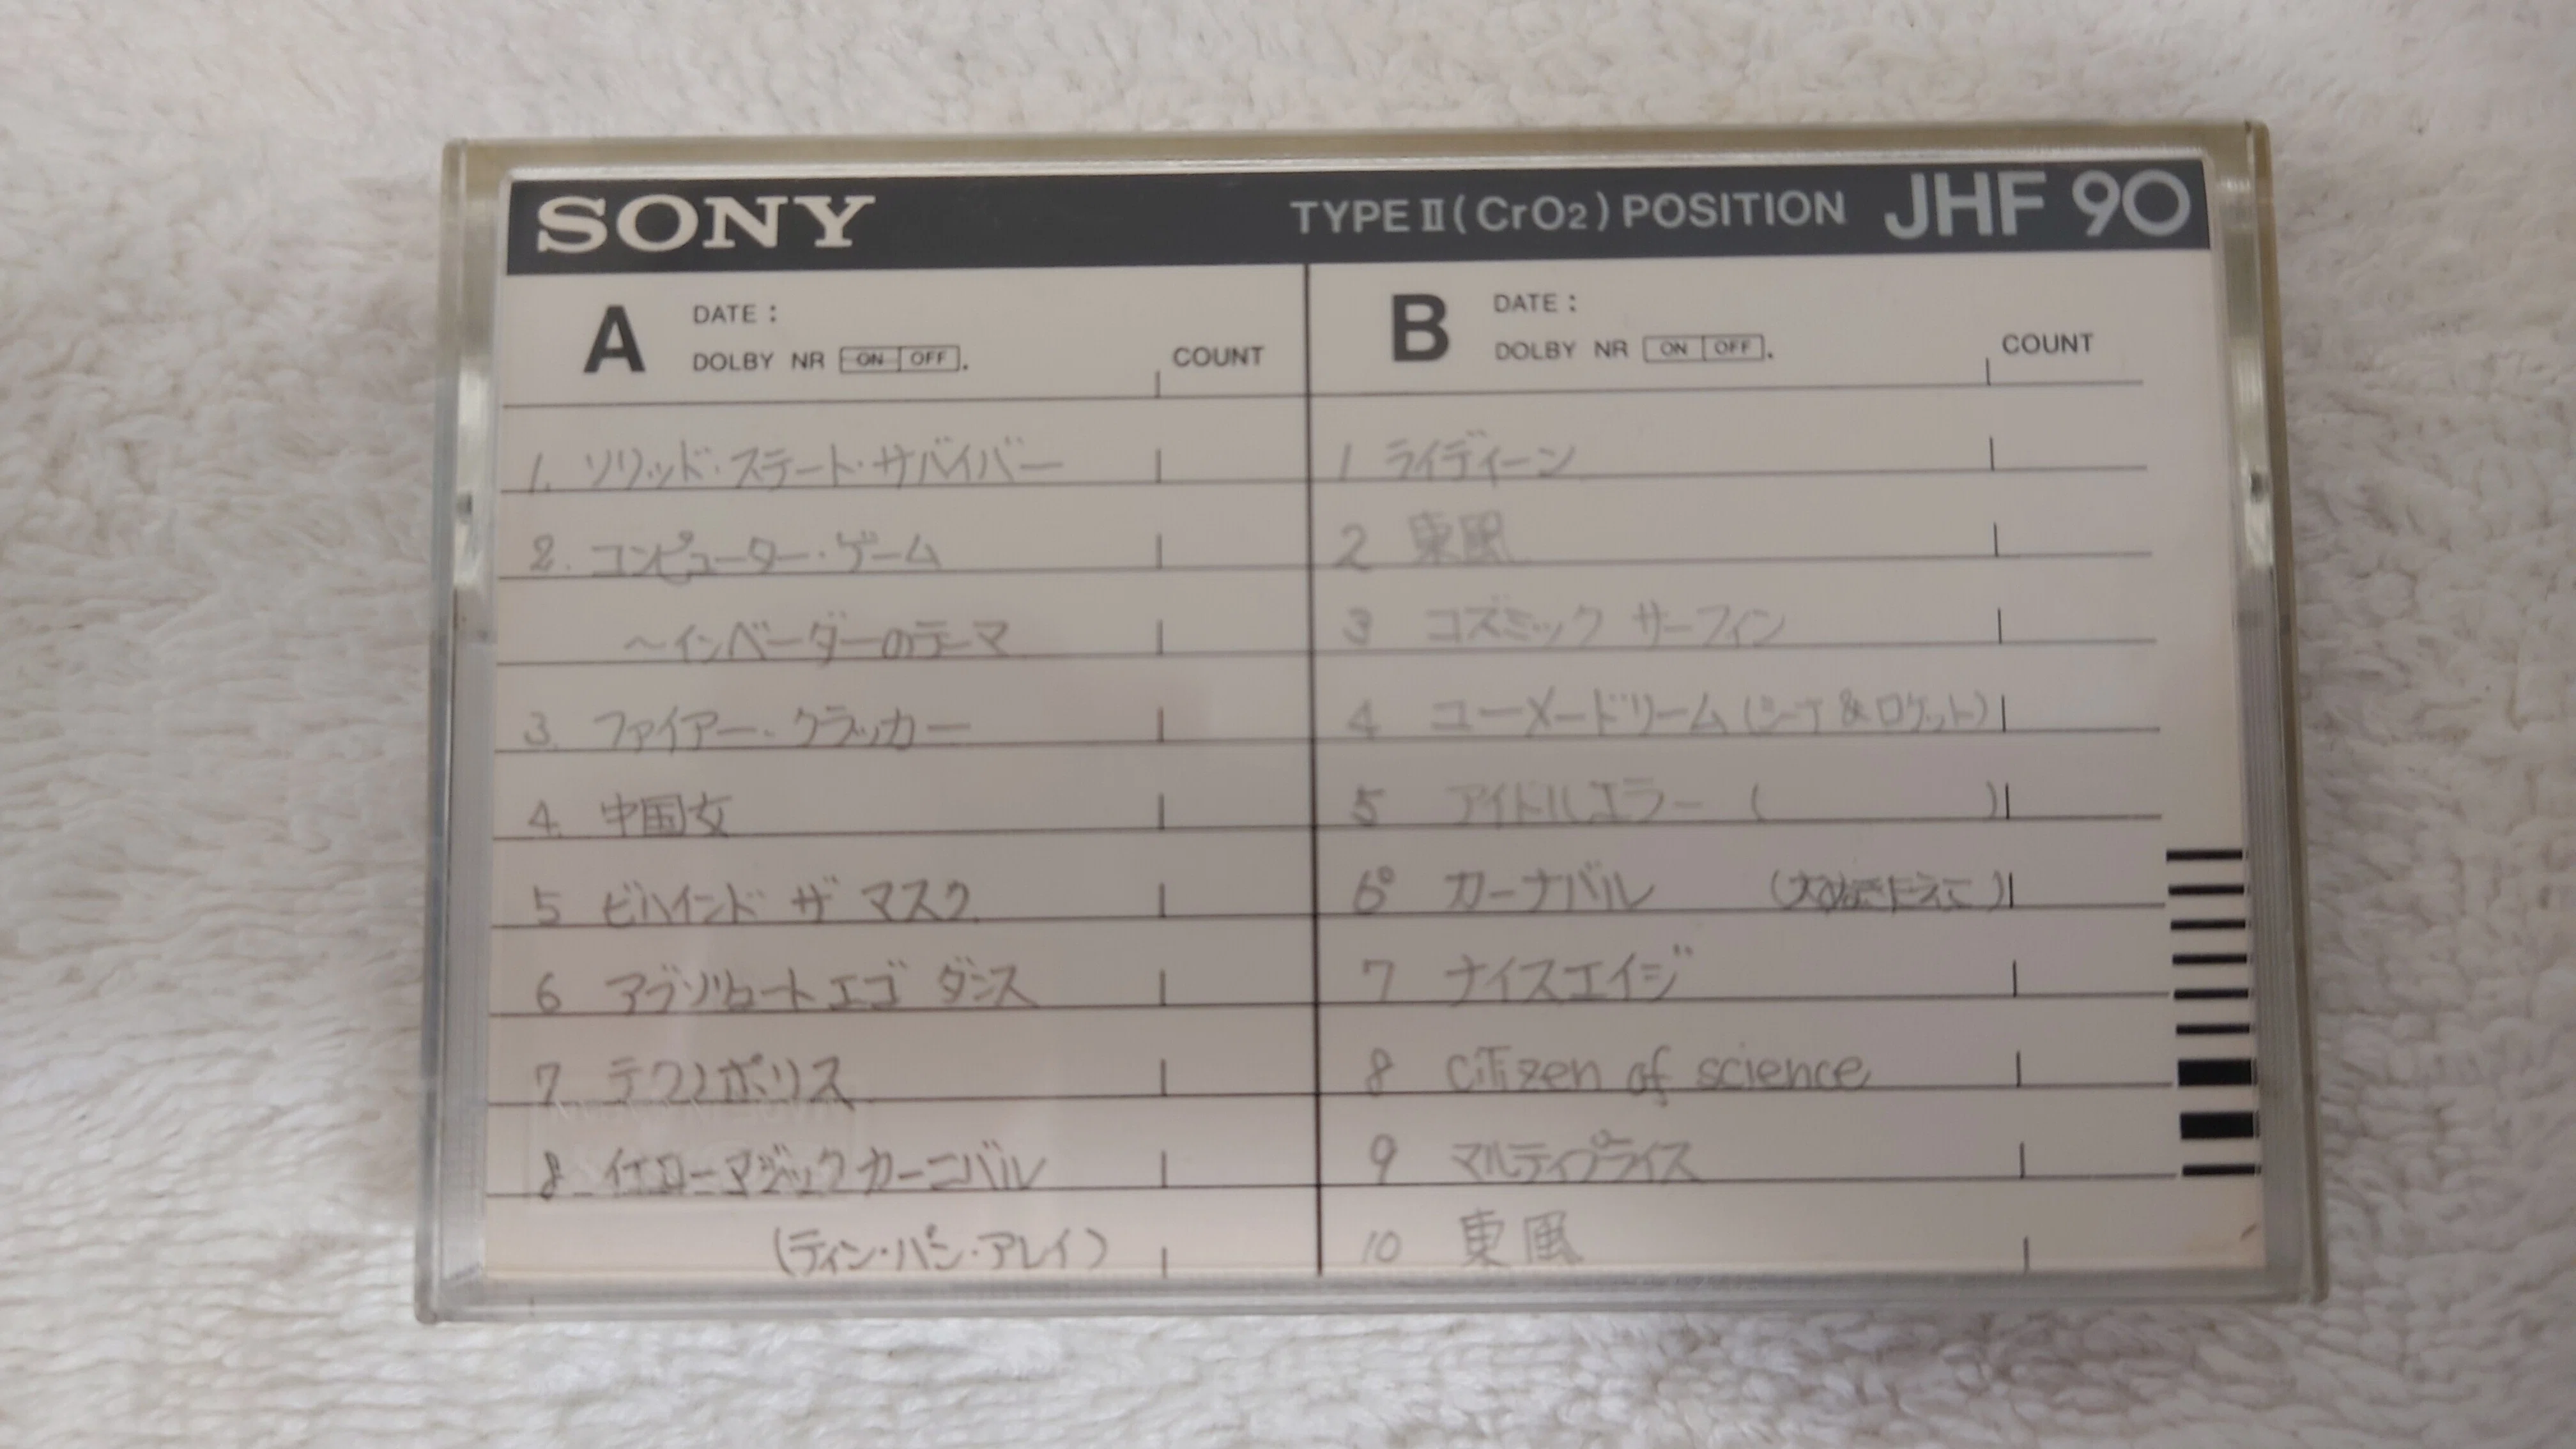 SONY TYPE II (CrO2) POSITION JHF 90
A DATE :
DOLBY NR ON OFF. COUNT
1. ソリッド・ステート・サバイバー
2. コンピューター・ゲーム
〜インベーダーのテーマ
3. ファイアー・クラッカー
4. 中国女
5 ビハインド ザ マスク
6 アブソリュートエゴ ダンス
7. テクノポリス
8. イエローマジックカーニバル
(ティン・パン・アレイ)
B DATE :
DOLBY NR ON OFF. COUNT
1 ライディーン
2 東風
3 コズミック サーフィン
4 ユーメードリーム (シーナ&ロケット)
5 アイドルエラー ( )
6 カーナバル
7 ナイスエイジ
8 citizen of science
9 マルティプライス
10 東風